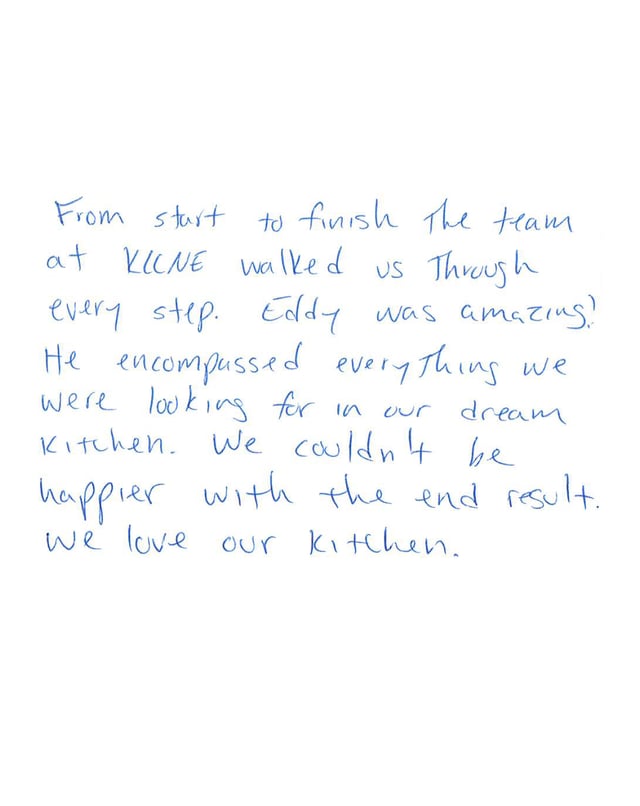 From start to finish The team
at KCCNE walked us Through
every step. Eddy was amazing!
He encompassed everyThing we
were looking for in our dream
kitchen. We couldn't be
happier with the end result.
We love our kitchen.